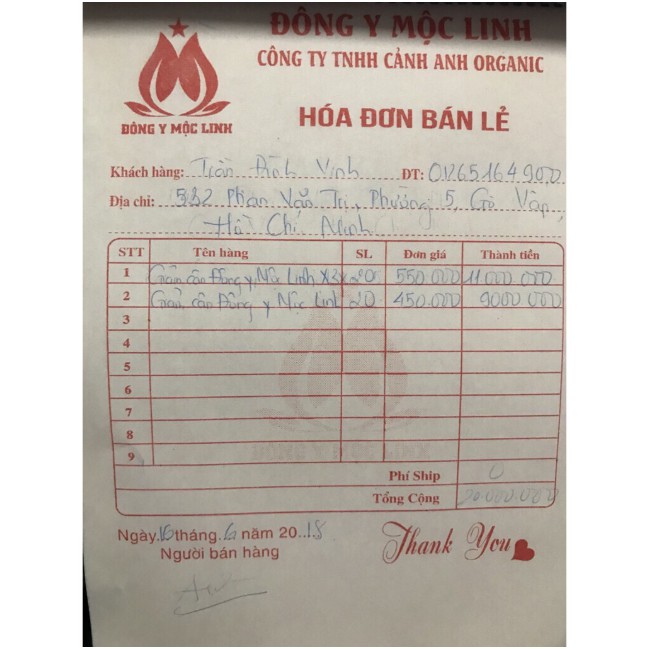 ĐÔNG Y MỘC LINH
CÔNG TY TNHH CẢNH ANH ORGANIC
ĐÔNG Y MỘC LINH
HÓA ĐƠN BÁN LẺ
Khách hàng: Trần Đình Vinh ĐT: 01265164900
Địa chỉ: 532 Phan Văn Trị, Phường 5, Gò Vấp,
Hồ Chí Minh
STT Tên hàng SL Đơn giá Thành tiền
1 Giảm cân Đông y Mộc Linh X2 x 20 550.000 11 000 000
2 Giảm cân Đông y Mộc Linh 20 450.000 9000 000
3
4
5
6
7
8
9
Phí Ship 0
Tổng Cộng 20.000.000
Ngày 16 tháng 6 năm 2018
Người bán hàng
Thank You